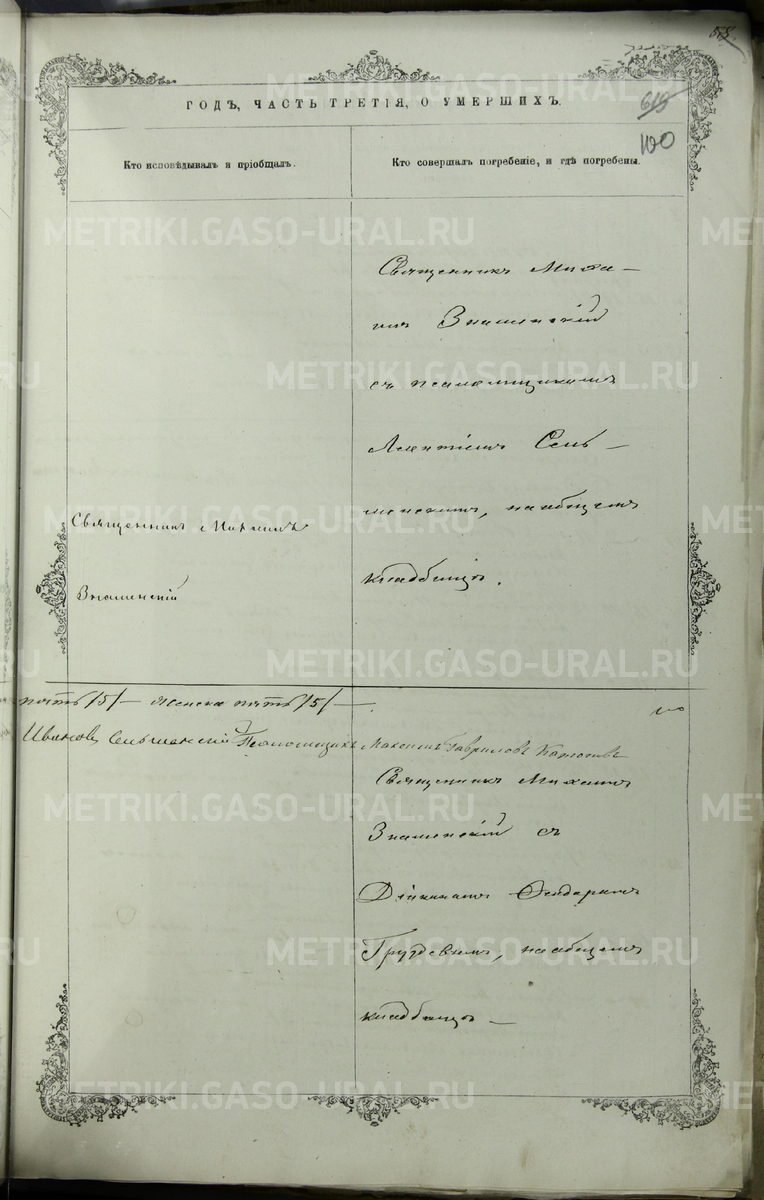 58
619
100
ГОДЪ, ЧАСТЬ ТРЕТІЯ, О УМЕРШИХЪ.
Кто исповѣдывалъ и пріобщалъ.
Кто совершалъ погребеніе, и гдѣ погребены.
Священникъ Михаилъ
Знаменскій
Священникъ Миха-
илъ Знаменскій
съ псаломщикомъ
на общемъ
кладбищѣ.
пять /5/ — женска пять /5/ —.
Ивановъ Псаломщикъ Максимъ Гавриловъ
Священникъ Михаилъ
Знаменскій съ
Діакономъ Ѳедоромъ
Груздевымъ, на общемъ
кладбищѣ —
METRIKI.GASO-URAL.RU